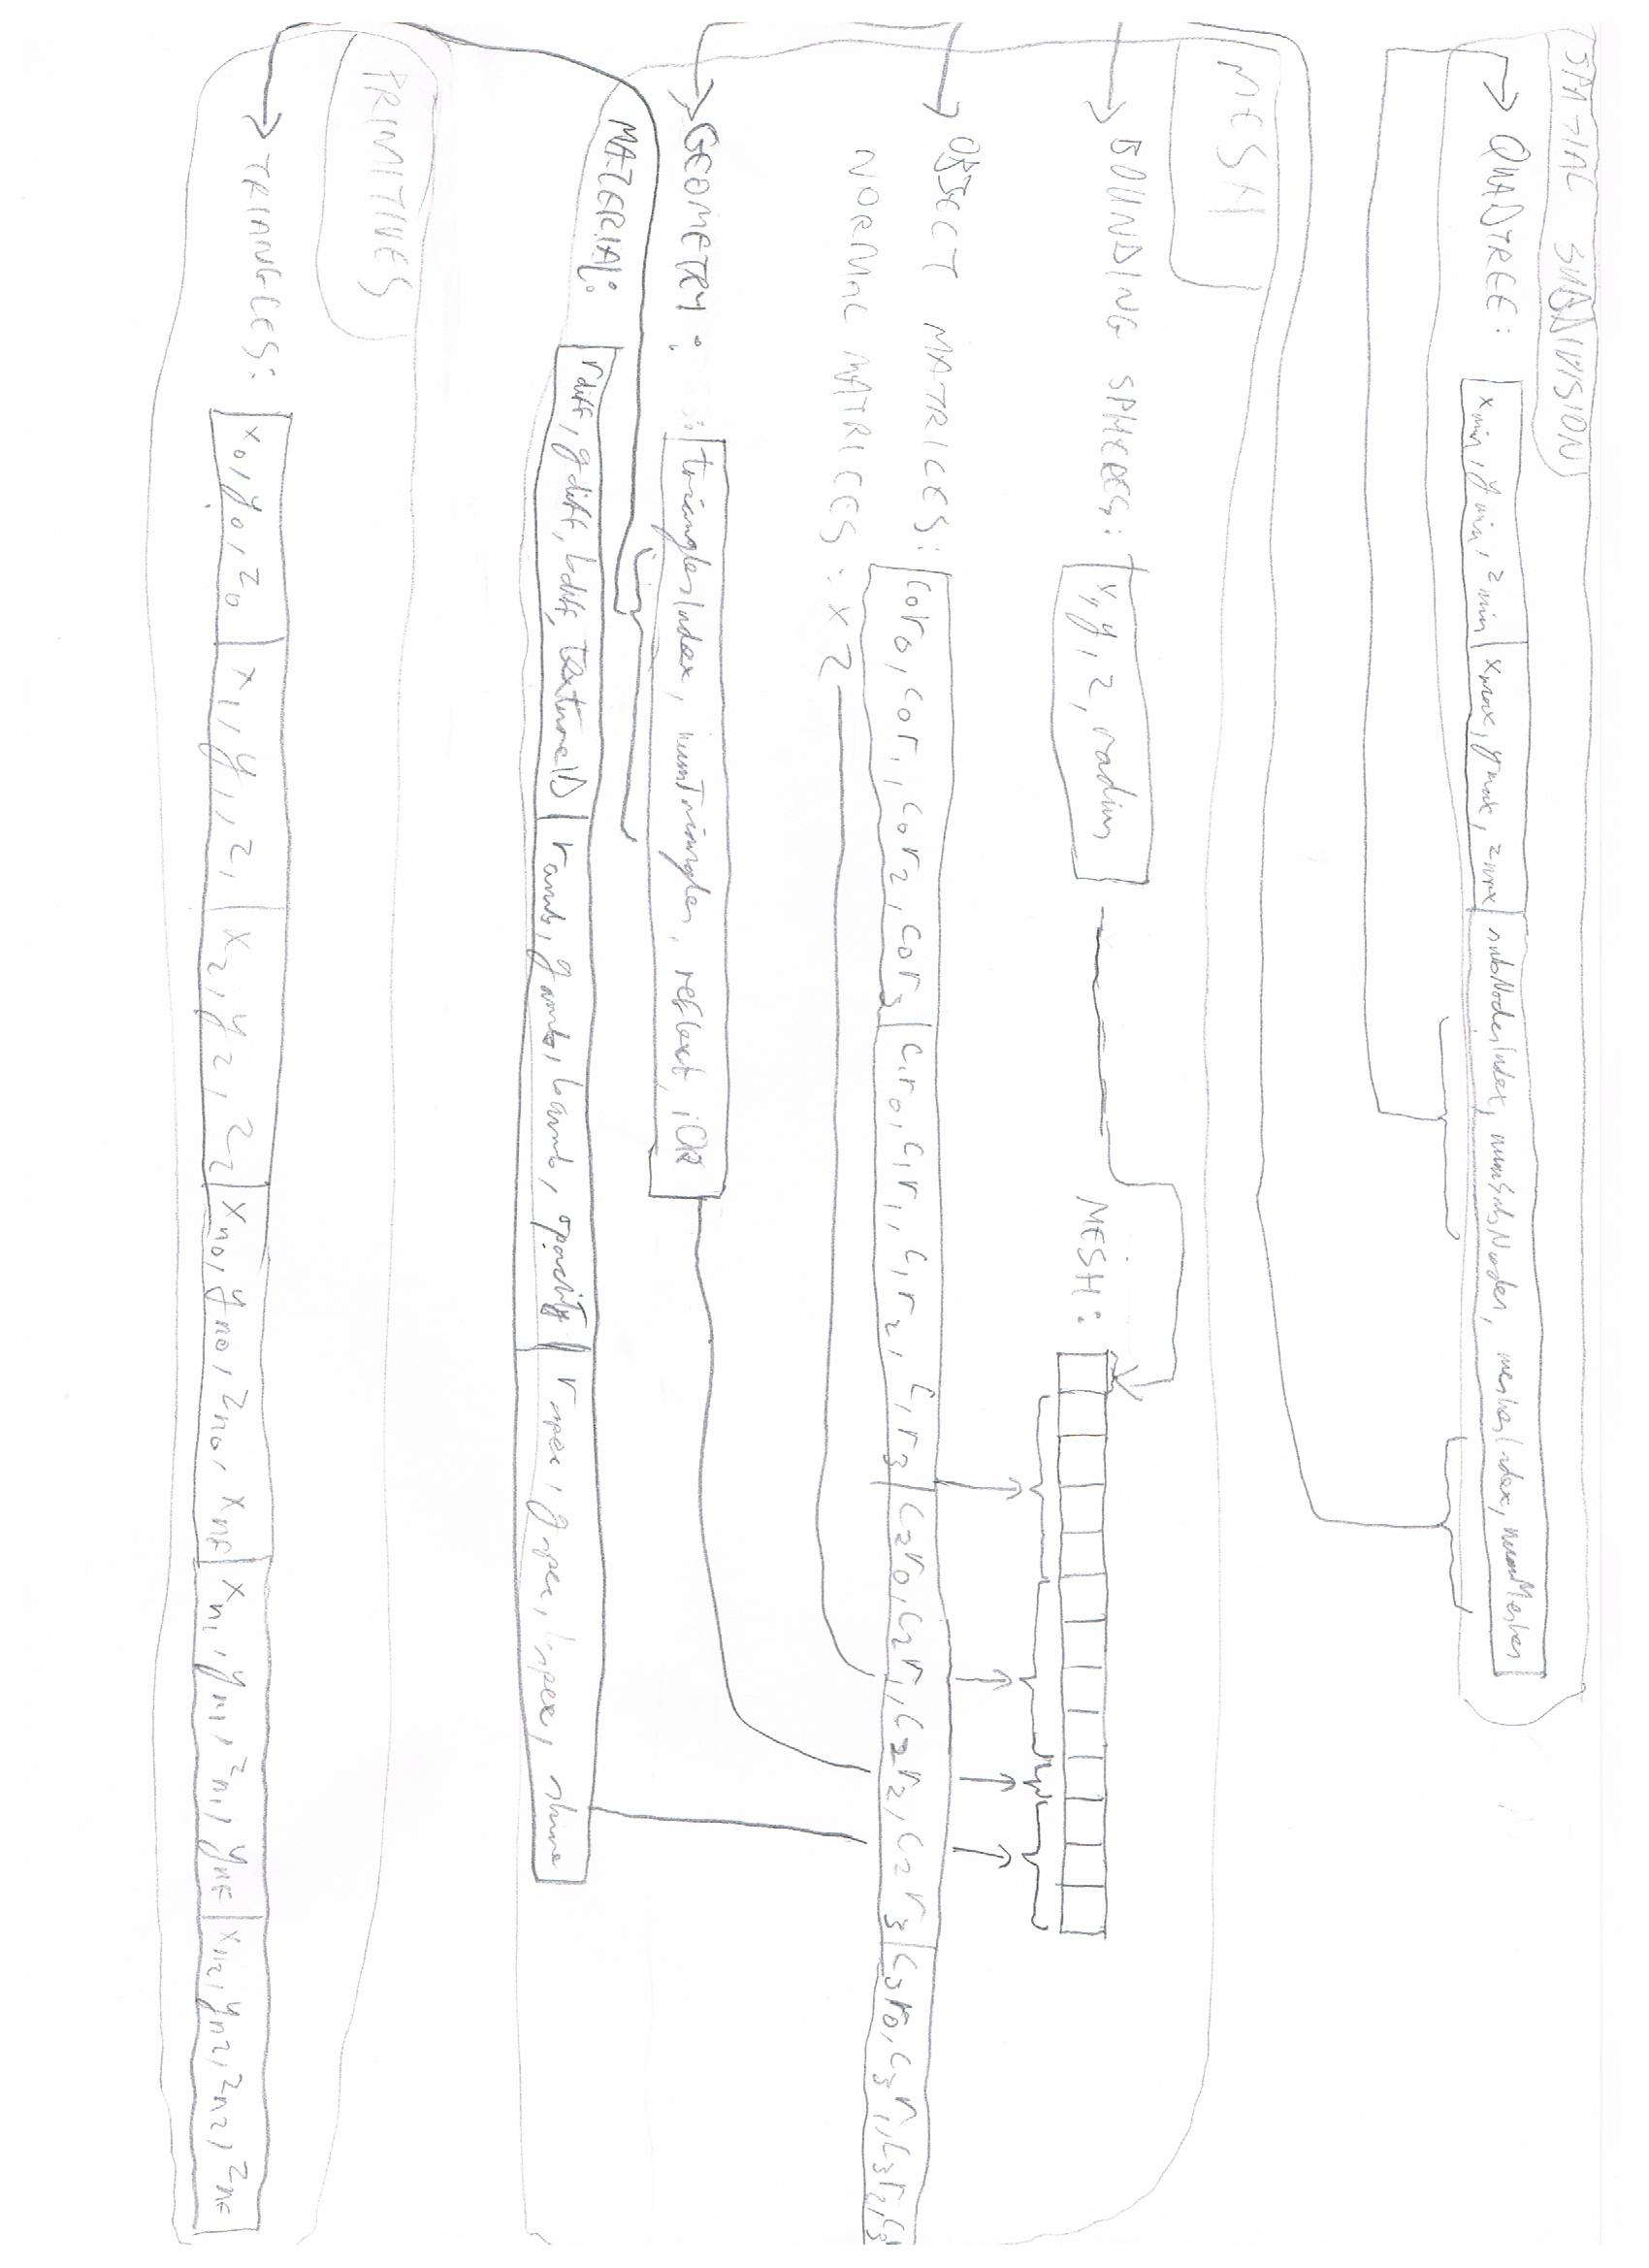 SPATIAL SUBDIVISION
QUADTREE: xmin, ymin, zmin | xmax, ymax, zmax | subNodesIndex, numSubNodes, meshesIndex, numMeshes
MESH
BOUNDING SPHERES: x, y, z, radius
MESH:
OBJECT MATRICES: c0r0, c0r1, c0r2, c0r3 | c1r0, c1r1, c1r2, c1r3 | c2r0, c2r1, c2r2, c2r3 | c3r0, c3r1, c3r2, c3
NORMAL MATRICES: x 2
GEOMETRY: trianglesIndex, numTriangles, reflect, iOR
MATERIAL: rdiff, gdiff, bdiff, textureID | ramb, gamb, bamb, opacity | rspec, gspec, bspec, shine
PRIMITIVES
TRIANGLES: x0, y0, z0 | x1, y1, z1 | x2, y2, z2 | xn0, yn0, zn0, xnF | xn1, yn1, zn1, ynF | xn2, yn2, zn2, znF